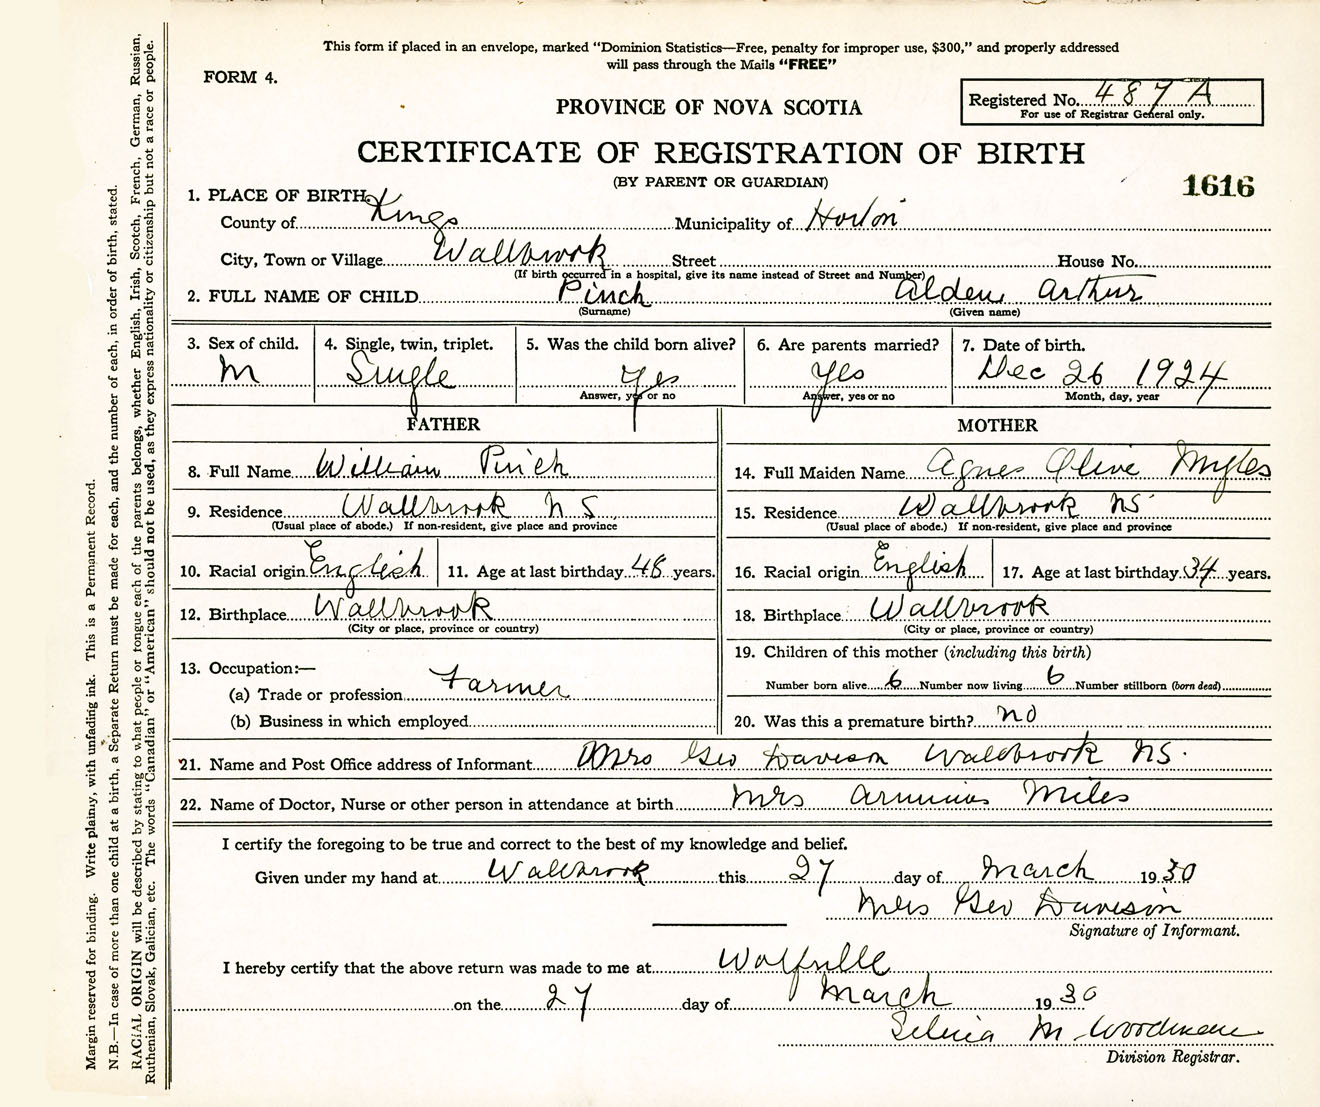 This form if placed in an envelope, marked "Dominion Statistics—Free, penalty for improper use, $300," and properly addressed
will pass through the Mails "FREE"
FORM 4.
Registered No. 487 A
For use of Registrar General only.
PROVINCE OF NOVA SCOTIA
CERTIFICATE OF REGISTRATION OF BIRTH
(BY PARENT OR GUARDIAN)
1616
1. PLACE OF BIRTH
County of Kings Municipality of Horton
City, Town or Village Wallbrook Street House No.
(If birth occurred in a hospital, give its name instead of Street and Number)
2. FULL NAME OF CHILD Pinch Alden Arthur
(Surname) (Given name)
3. Sex of child. 4. Single, twin, triplet. 5. Was the child born alive? 6. Are parents married? 7. Date of birth.
M Single Yes Yes Dec 26 1924
Answer, yes or no Answer, yes or no Month, day, year
FATHER MOTHER
8. Full Name William Pinch 14. Full Maiden Name Agnes Olive Myles
9. Residence Wallbrook N S 15. Residence Wallbrook NS
(Usual place of abode.) If non-resident, give place and province (Usual place of abode.) If non-resident, give place and province
10. Racial origin English 11. Age at last birthday 48 years. 16. Racial origin English 17. Age at last birthday 34 years.
12. Birthplace Wallbrook 18. Birthplace Wallbrook
(City or place, province or country) (City or place, province or country)
13. Occupation:— 19. Children of this mother (including this birth)
(a) Trade or profession Farmer Number born alive 6 Number now living 6 Number stillborn (born dead)
(b) Business in which employed 20. Was this a premature birth? no
21. Name and Post Office address of Informant Mrs Geo Davison Wallbrook NS.
22. Name of Doctor, Nurse or other person in attendance at birth Mrs Miles
I certify the foregoing to be true and correct to the best of my knowledge and belief.
Given under my hand at Wallbrook this 27 day of March 1930
Mrs Geo Davison
Signature of Informant.
I hereby certify that the above return was made to me at Wolfville
on the 27 day of March 1930
M. Woodman
Division Registrar.
Margin reserved for binding. Write plainly, with unfading ink. This is a Permanent Record.
N.B.—In case of more than one child at a birth, a Separate Return must be made for each, and the number of each, in order of birth, stated.
RACIAL ORIGIN will be described by stating to what people or tongue each of the parents belongs, whether English, Irish, Scotch, French, German, Russian,
Ruthenian, Slovak, Galician, etc. The words "Canadian" or "American" should not be used, as they express nationality or citizenship but not a race or people.